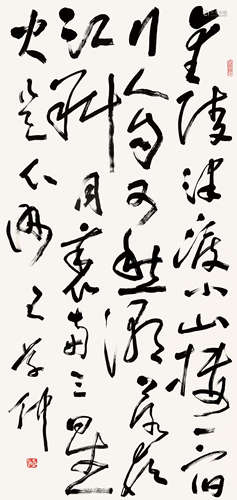 金陵津渡小山樓一宿
行人自可愁潮落夜
江斜月裏兩三星
火是瓜洲 王学仲